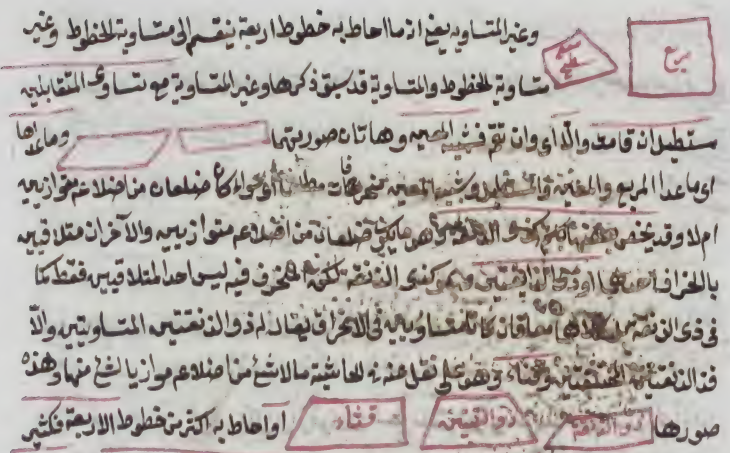 وغير المتساوية يعني ان ما احاط به خطوط اربعة ينقسم الى متساوية الخطوط وغير
مربع
متساوية الخطوط والمتساوية قد سبق ذكرها وغير المتساوية مع تساوى المتقابلين
مستطيل ان قامت والا اى وان لم تقم فشبيه المعين وهاتان صورتهما وما عداها
اى ما عدا المربع والمعين والمستطيل وشبيه المعين منحرفات مطلقا سواء كان ضلعان من اضلاعه متوازيين
ام لا وقد يخص بعضها باسم كذى الزنقة وهو ما يكون ضلعان من اضلاعه متوازيين والآخران متلاقيين
بالانحراف احدهما او ذى الزنقتين وهو كذى الزنقة لكن المنحرف فيه ليس احد المتلاقيين فقط كما
فى ذى الزنقة بل كلاهما فان كانا متساويين فى الانحراف يقال له ذو الزنقتين المتساويتين والا
فذو الزنقتين المختلفتين وقثاء وهو على نقل عنه فى الحاشية ما لا شئ من اضلاعه موازيا لشئ منها وهذه
صورها ذو الزنقة ذو الزنقتين قثاء او احاط به اكثر من خطوط الاربعة فكثير